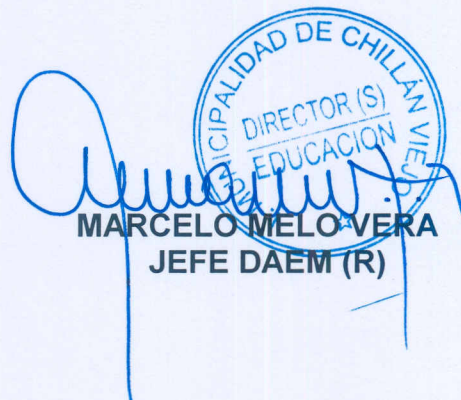 MUNICIPALIDAD DE CHILLÁN VIEJO
DIRECTOR (S)
EDUCACION
MARCELO MELO VERA
JEFE DAEM (R)